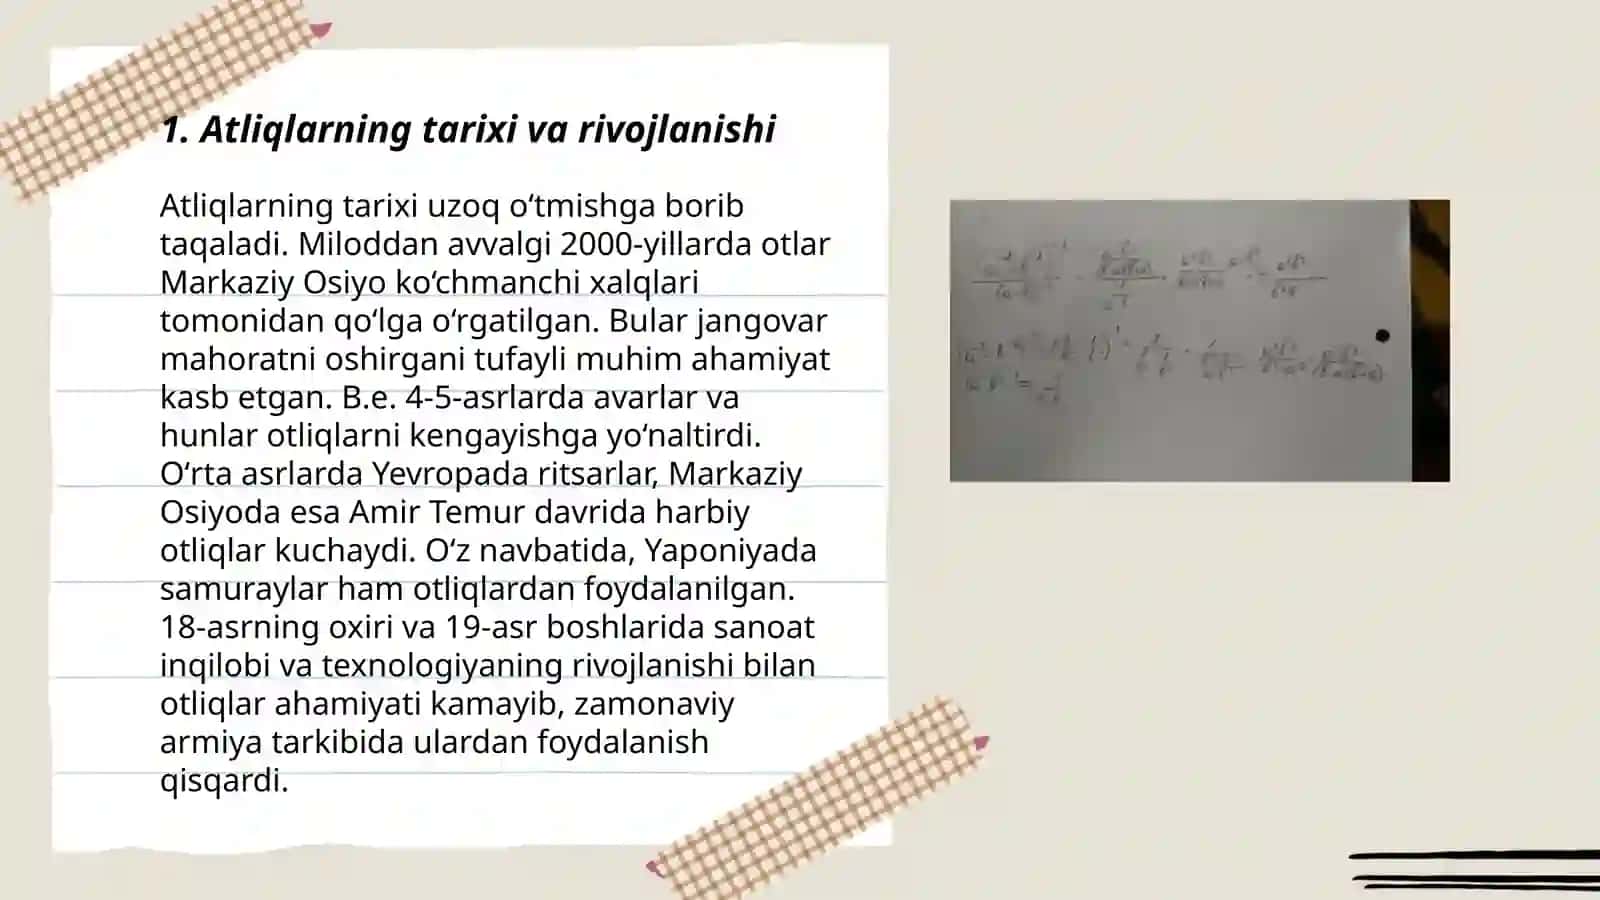 1. Atliqlarning tarixi va rivojlanishi
Atliqlarning tarixi uzoq o‘tmishga borib
taqaladi. Miloddan avvalgi 2000-yillarda otlar
Markaziy Osiyo ko‘chmanchi xalqlari
tomonidan qo‘lga o‘rgatilgan. Bular jangovar
mahoratni oshirgani tufayli muhim ahamiyat
kasb etgan. B.e. 4-5-asrlarda avarlar va
hunlar otliqlarni kengayishga yo‘naltirdi.
O‘rta asrlarda Yevropada ritsarlar, Markaziy
Osiyoda esa Amir Temur davrida harbiy
otliqlar kuchaydi. O‘z navbatida, Yaponiyada
samuraylar ham otliqlardan foydalanilgan.
18-asrning oxiri va 19-asr boshlarida sanoat
inqilobi va texnologiyaning rivojlanishi bilan
otliqlar ahamiyati kamayib, zamonaviy
armiya tarkibida ulardan foydalanish
qisqardi.